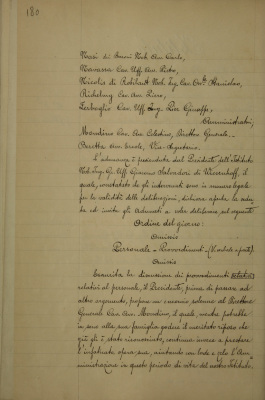 180
Nasi di
Cav. Uff. Avv. Pietro,
Nicolis di Robilant Nob. Ing. Cav. Stanislao,
Cav. Avv. Piero,
Cav. Uff. Ing. Pier Giuseppe,
Amministratori;
Mondino Cav. Avv. Celestino, Direttore Generale.
Beretta Avv. Vice-Segretario.
L'adunanza è presieduta dal Presidente dell'Istituto
Nob. Ing. Gr. Uff. Giacomo Salvadori di Wiesenhoff, il
quale, constatato che gli intervenuti sono in numero legale
per la validità delle deliberazioni, dichiara aperta la sedu-
ta ed invita gli Adunati a voler deliberare sul seguente
Ordine del giorno:
Omissis
Personale = Provvedimenti (Verbale a parte).
Omissis
Esaurita la discussione di provvedimenti
relativi al personale, il Presidente, prima di passare ad
altro argomento, porge un saluto al Direttore
Generale Cav. Avv. Mondino, il quale, mentre potrebbe
in seno alla sua famiglia godere il meritato riposo che
già gli è stato riconosciuto, continua invece a prestare
l'opera sua, aiutando con lode e l'Am-
ministrazione in questo periodo di vita del nostro Istituto.